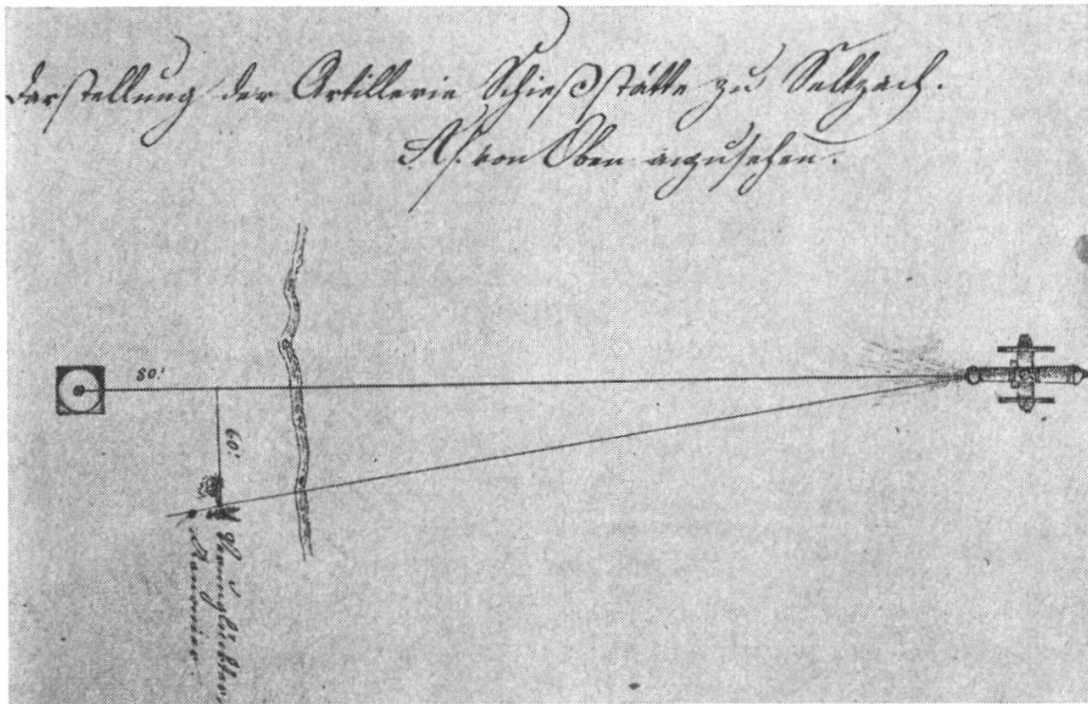 Darstellung der Artillerie Schießstätte zu Seltzach.
NB. von Oben anzusehen.
80'
60'
Verunglückter
Kanonier